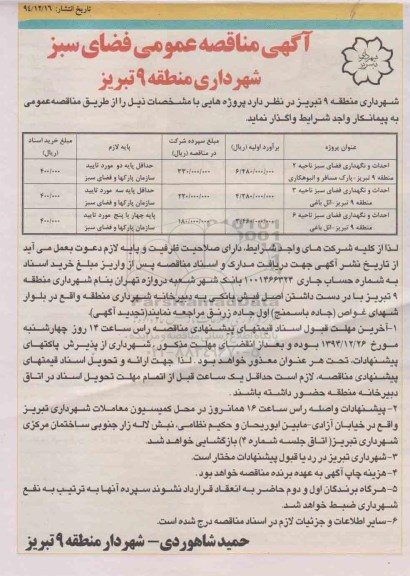 تاریخ انتشار: ۹۴/۱۲/۱۶
آگهی مناقصه عمومی فضای سبز
شهرداری منطقه ۹ تبریز
شهرداری منطقه ۹ تبریز در نظر دارد پروژه هایی با مشخصات ذیل را از طریق مناقصه عمومی
به پیمانکار واجد شرایط واگذار نماید.
عنوان پروژه برآورد اولیه (ریال) مبلغ سپرده شرکت در مناقصه (ریال) پایه لازم مبلغ خرید اسناد (ریال)
احداث و نگهداری فضای سبز ناحیه ۲ منطقه ۹ تبریز - پارک مسافر و انبوهکاری ۶/۲۸۰/۰۰۰/۰۰۰ ۳۳۰/۰۰۰/۰۰۰ حداقل پایه دو مورد تایید سازمان پارکها و فضای سبز ۴۰۰/۰۰۰
احداث و نگهداری فضای سبز ناحیه ۳ منطقه ۹ تبریز - ائل باغی ۴/۳۸۰/۰۰۰/۰۰۰ ۲۲۰/۰۰۰/۰۰۰ حداقل پایه سه مورد تایید سازمان پارکها و فضای سبز ۴۰۰/۰۰۰
احداث و نگهداری فضای سبز ناحیه ۶ منطقه ۹ تبریز - ائل باغی ۱۸۰/۰۰۰/۰۰۰ پایه چهار یا پنج مورد تایید سازمان پارکها و فضای سبز ۴۰۰/۰۰۰
لذا از کلیه شرکت های واجد شرایط، دارای صلاحیت ظرفیت و پایه لازم دعوت بعمل می آید
از تاریخ نشر آگهی جهت دریافت مدارک و اسناد مناقصه پس از واریز مبلغ خرید اسناد
به شماره حساب جاری ۱۰۰۱۳۶۶۳۲۴ بانک شهر شعبه دروازه تهران بنام شهرداری منطقه
۹ تبریز با در دست داشتن اصل فیش بانکی به دبیرخانه شهرداری منطقه واقع در بلوار
شهدای غواص (جاده باسمنج) اول جاده زرنق مراجعه نمایند(تجدید آگهی).
۱-آخرین مهلت قبول اسناد قیمتهای پیشنهادی مناقصه راس ساعت ۱۴ روز چهارشنبه
مورخ ۱۳۹۴/۱۲/۲۶ بوده و بعد از انقضای مهلت مذکور، شهرداری از پذیرش پاکتهای
پیشنهادات، تحت هر عنوان معذور خواهد بود. لذا جهت ارائه و تحویل اسناد قیمتهای
پیشنهادی مناقصه، لازم است حداقل یک ساعت قبل از اتمام مهلت تحویل اسناد در اتاق
دبیرخانه منطقه حضور داشته باشند.
۲-پیشنهادات واصله راس ساعت ۱۶ همانروز در محل کمیسیون معاملات شهرداری تبریز
واقع در خیابان آزادی-مابین ابوریحان و حکیم نظامی، نبش لاله زار جنوبی ساختمان مرکزی
شهرداری تبریز( اتاق جلسه شماره ۴) بازگشایی خواهد شد.
۳-شهرداری تبریز در رد یا قبول پیشنهادات مختار است.
۴-هزینه چاپ آگهی به عهده برنده مناقصه خواهد بود.
۵-هرگاه برندگان اول و دوم حاضر به انعقاد قرارداد نشوند سپرده آنها به ترتیب به نفع
شهرداری ضبط خواهد شد.
۶-سایر اطلاعات و جزئیات لازم در اسناد مناقصه درج شده است.
حمید شاهوردی- شهردار منطقه ۹ تبریز